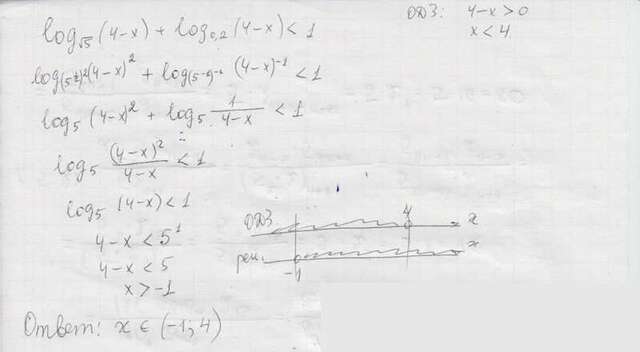 log√5 (4-x) + log0,2 (4-x) < 1
ОДЗ: 4-x>0
x<4
log(5½)² (4-x)² + log(5⁻¹)⁻¹ (4-x)⁻¹ < 1
log5 (4-x)² + log5 1/(4-x) < 1
log5 (4-x)²/(4-x) < 1
log5 (4-x) < 1
4-x < 5¹
4-x < 5
x > -1
ОДЗ 4 x
реш. -1 x
Ответ: x ∈ (-1; 4)